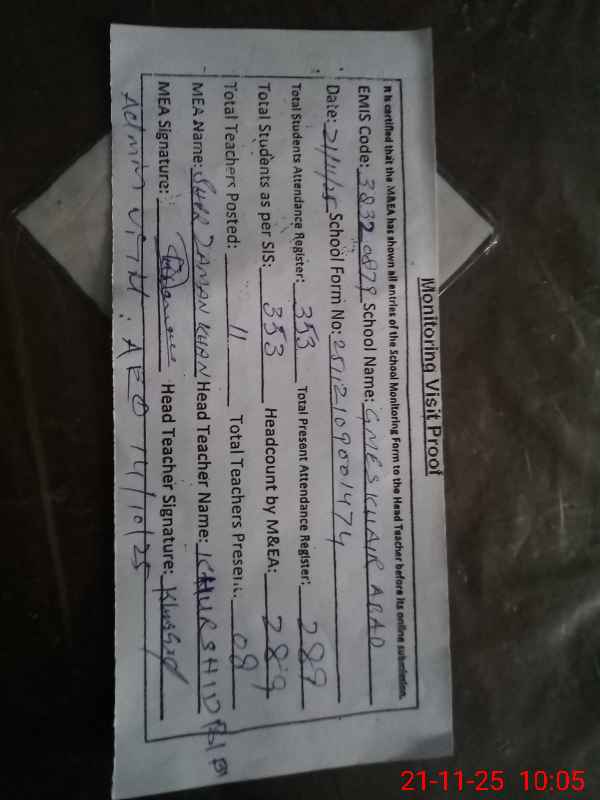 Monitoring Visit Proof
It is certified that the M&EA has shown all entries of the School Monitoring Form to the Head Teacher before its online submission.
EMIS Code: 38320879 School Name: GMES KHAIR ABAD
Date: 21/11/25 School Form No: 25112109001474
Total Students Attendance Register: 353 Total Present Attendance Register: 289
Total Students as per SIS: 353 Headcount by M&EA: 289
Total Teachers Posted: 11 Total Teachers Present: 08
MEA Name: SHER ZAMAN KHAN Head Teacher Name: KHURSHID
MEA Signature: Head Teacher Signature: Khurshid
Admin Visit: AEO 14/10/25
21-11-25 10:05